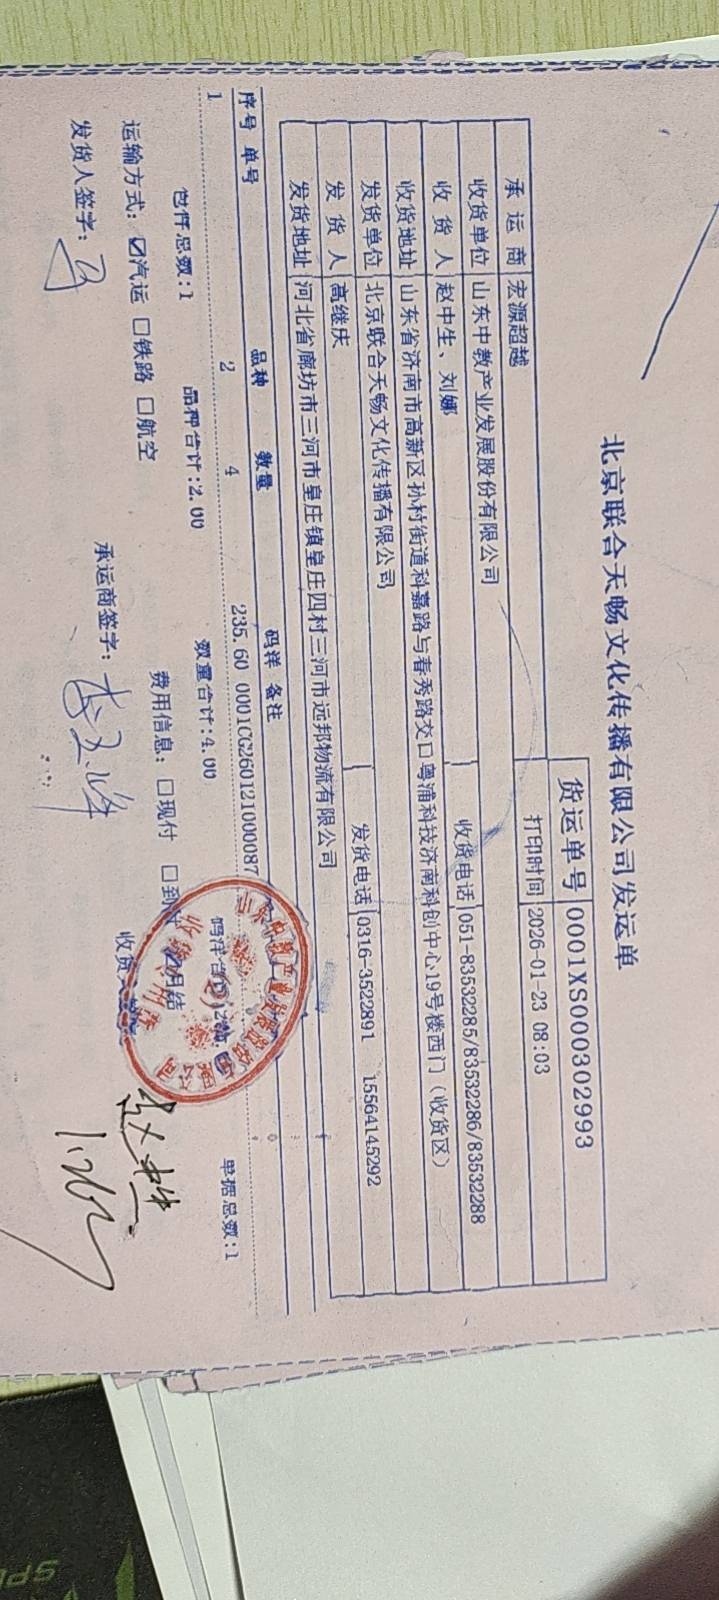 北京联合天畅文化传播有限公司发运单
货运单号 0001XS000302993
打印时间 2026-01-23 08:03
承运商 宏源超越
收货单位 山东中教产业发展股份有限公司 收货电话 051-83532285/83532286/83532288
收货人 赵中生、刘娜
收货地址 山东省济南市高新区孙村街道科嘉路与春秀路交口粤浦科技济南科创中心19号楼西门（收货区）
发货单位 北京联合天畅文化传播有限公司 发货电话 0316-3522891 15564145292
发货人 高继庆
发货地址 河北省廊坊市三河市皇庄镇皇庄四村三河市远邦物流有限公司
序号 单号 品种 数量 码洋 备注
1 2 4 235.60 0001CG260121000087
包件总数:1 品种合计:2.00 数量合计:4.00 码洋合计 单据总数:1
运输方式: ☑汽运 □铁路 □航空 费用信息: □现付 □到付 ☑月结
发货人签字: 承运商签字: 收货人